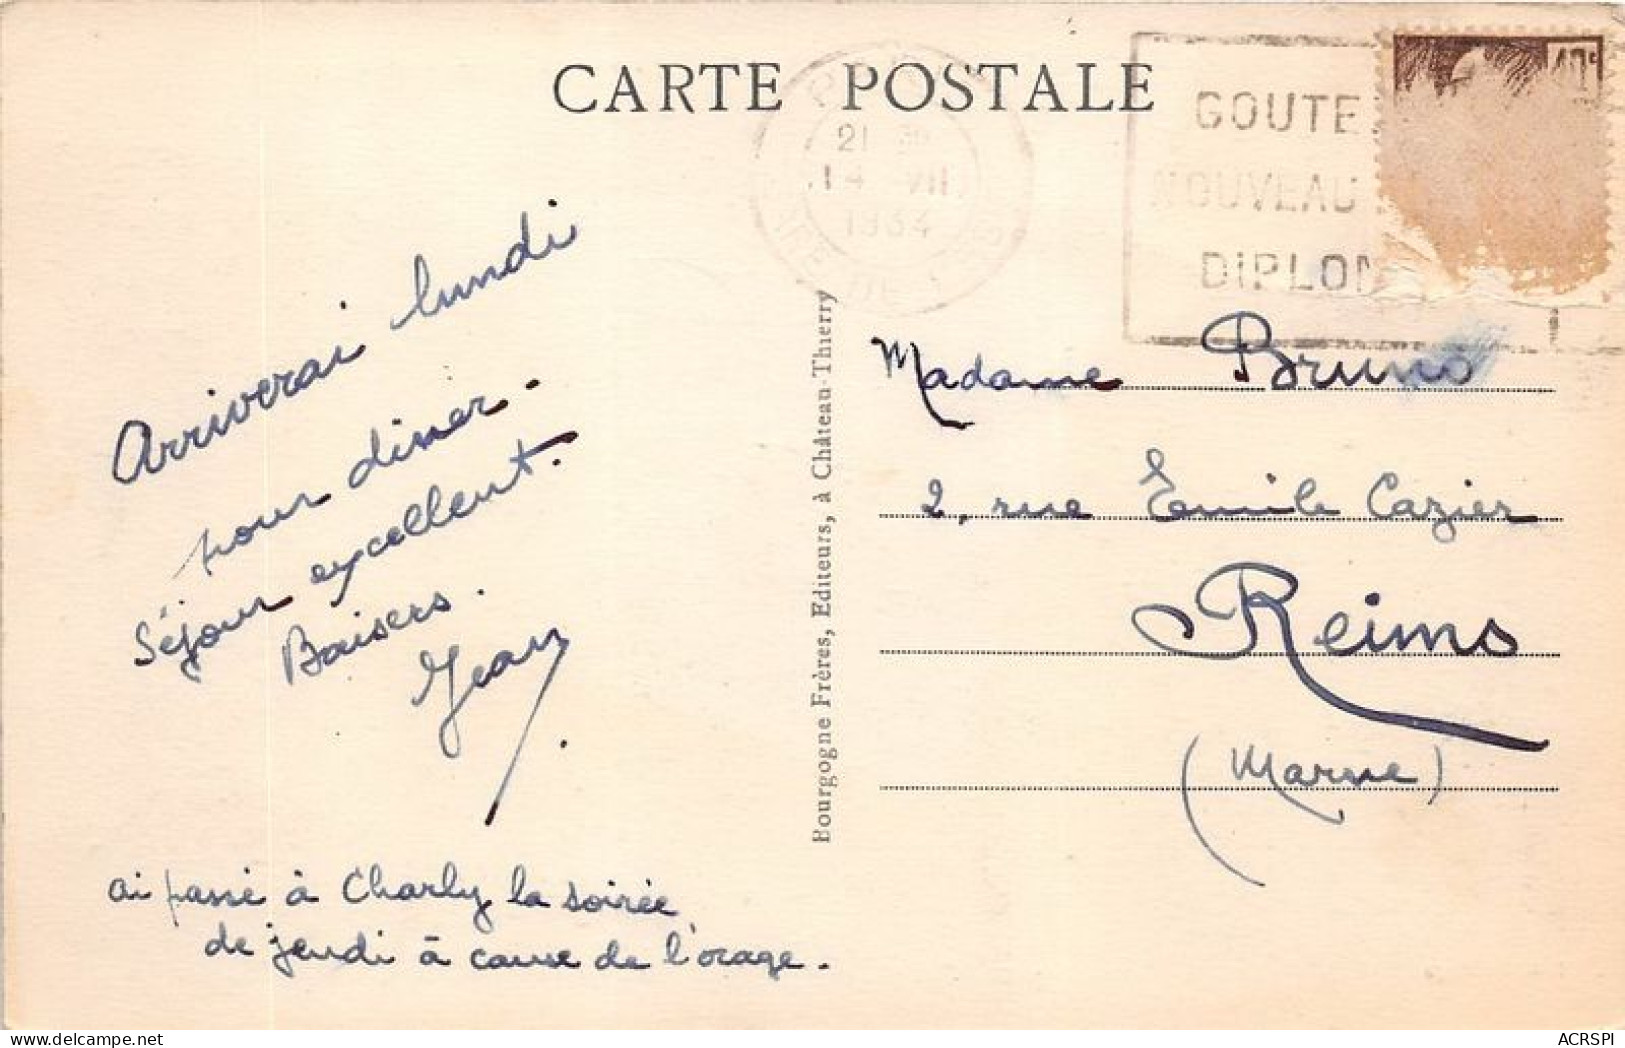 CARTE POSTALE
21
14 VII
1934
GOUTE
NOUVEAU
DIPLOM
40c
Arriverai lundi
pour diner.
Séjour excellent.
Baisers.
Jean
ai passé à Charly la soirée
de jeudi à cause de l'orage.
Bourgogne Frères, Editeurs, à Château-Thierry
Madame Bruno
2, rue Emile Cazier
Reims
(Marne)
delcampe.net
ACRSPI